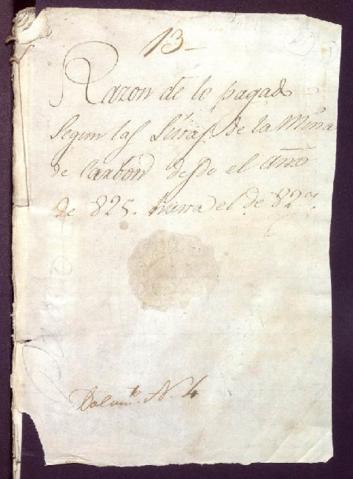 13_
Razon de lo pagado
Segun las de la Mina
de Carbon desde el año
de 825. hasta el de 827.
N. 4